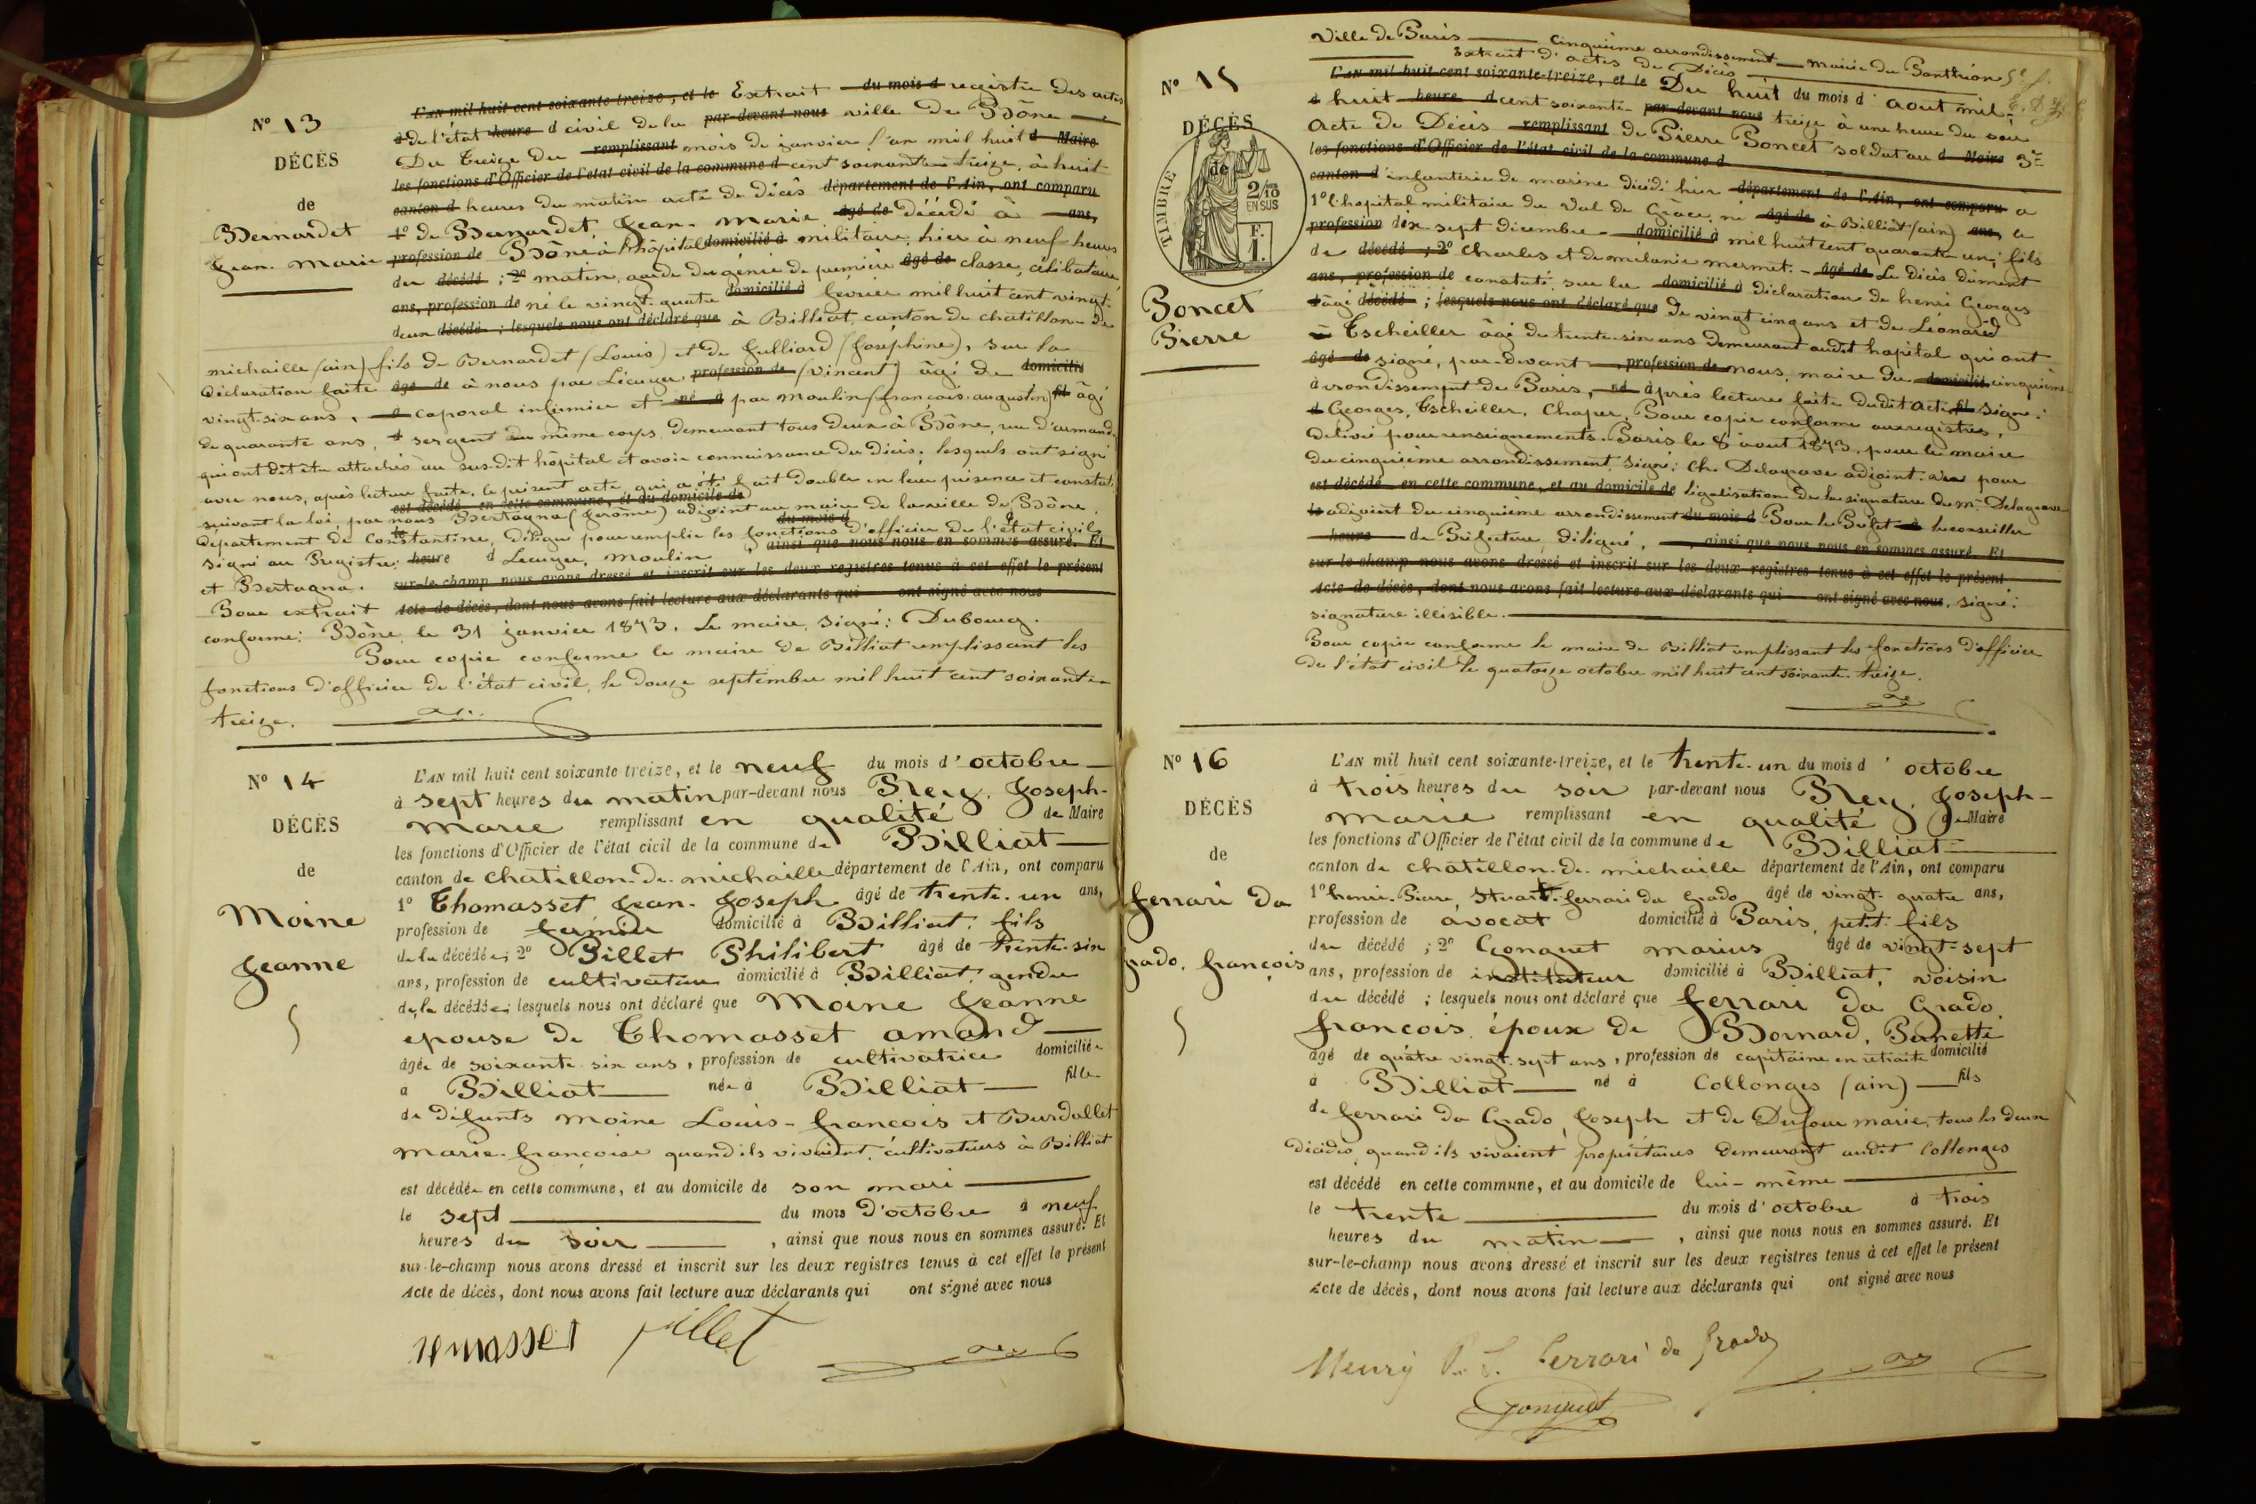 N° 13
DÉCÈS
de
Bernardet
Jean-Marie
L'AN mil huit cent soixante-treize, et le Extrait du mois d registre des actes
à de l'état heure d civil de la par-devant nous ville de Bône
Du treize du remplissant mois de janvier l'an mil huit d Maire
les fonctions d'Officier de l'état civil de la commune d cent soixante-treize, à huit
canton d heures du matin acte de décès département de l'Ain, ont comparu
1° de Bernardet, Jean-Marie âgé de décédé à ans,
profession de Bône à l'hôpital domicilié à militaire, hier à neuf heures
du décédé ; 2° matin, garde du génie de première âgé de classe, célibataire
ans, profession de né le vingt-quatre domicilié à fevrier mil huit cent vingt-
deux décédé ; lesquels nous ont déclaré que à Billiat, canton de chatillon-de
michaille (ain) fils de Bernardet (Louis) et de Julliard (Josephine), sur la
déclaration faite âgé de à nous par Lécuyer profession de (vincent) âgé de domicilié
vingt-six ans, a caporal infirmier et né à par Moulin (françois-augustin) fil âgé
de quarante ans, d sergent du même corps, demeurant tous deux à Bône, rue d'armandy
qui ont dit être attachés au sus-dit hôpital et avoir connaissance du décès. lesquels ont signé
avec nous, après lecture faite, le présent acte qui a été fait double en leur présence et constaté
est décédé en cette commune, et au domicile de
suivant la loi, par nous Bertagna (Jérôme) adjoint au maire de la ville de Bône,
le du mois d à
département de Constantine, délégué pour remplir les fonctions d'officier de l'état civil,
signé au Registre: heure d Lecuyer, Moulin ainsi que nous nous en sommes assuré. Et
et Bertagna. sur-le-champ nous avons dressé et inscrit sur les deux registres tenus à cet effet le présent
Pour extrait Acte de décès, dont nous avons fait lecture aux déclarants qui ont signé avec nous
conforme: Bône, le 31 janvier 1873. Le maire, signé: Dubourg.
Pour copie conforme le maire de Billiat remplissant les
fonctions d'officier de l'état civil, le douze septembre mil huit cent soixante-
treize.
N° 14
DÉCÈS
de
Moine
Jeanne
L'AN mil huit cent soixante-treize, et le neuf du mois d' octobre
à sept heures du matin par-devant nous Rey, Joseph-
Marie remplissant en qualité de Maire
les fonctions d'Officier de l'état civil de la commune de Billiat
canton de chatillon-de-michaille département de l'Ain, ont comparu
1° Thomasset Jean-Joseph âgé de trente-un ans,
profession de fermier domicilié à Billiat, fils
de la décédée ; 2° Pillet Philibert âgé de trente-six
ans, profession de cultivateur domicilié à Billiat, gendre
de la décédée ; lesquels nous ont déclaré que Moine Jeanne
épouse de Thomasset amand
âgée de soixante-six ans, profession de cultivatrice domiciliée
à Billiat née à Billiat fille
de défunts Moine Louis-françois et Burdallet
Marie-françoise quand ils vivaient, cultivateurs à Billiat
est décédée en cette commune, et au domicile de son mari
le sept du mois d'octobre à neuf
heures du soir , ainsi que nous nous en sommes assuré. Et
sur-le-champ nous avons dressé et inscrit sur les deux registres tenus à cet effet le présent
Acte de décès, dont nous avons fait lecture aux déclarants qui ont signé avec nous
pillet
ville de Paris cinquième arrondissement mairie du Panthéon
Extrait d'actes de Décès
N° 15
DÉCÈS
de
TIMBRE
2/10
EN SUS
F.
1.
Poncet
Pierre
L'AN mil huit cent soixante-treize, et le Du huit du mois d août mil
à huit heure d cent soixante- par-devant nous treize à une heure du soir
Acte de Décès remplissant de Pierre Poncet soldat au d Maire 3e
les fonctions d'Officier de l'état civil de la commune d
canton d infanterie de marine décédé hier département de l'Ain, ont comparu a
1° l'hopital militaire du Val de Grâce, né âgé de à Billiat (ain) ans, a
profession dix-sept décembre domicilié à mil huit cent quarante un, fils
de décédé ; 2° Charles et de mélanie mermet. - âgé de Le décès dûment
ans, profession de constaté sur la domicilié à déclaration de henri Georges
d âgé décédé ; lesquels nous ont déclaré que de vingt cinq ans et de Léonard
Escheiller âgé de trente-six ans demeurant audit hopital qui ont
âgé de signé, par-devant profession de nous, maire du domicilié cinquième
arrondissement de Paris, né après lecture faite dudit acte fil signé:
d Georges, Escheiller, Chaper, Pour copie conforme aux registres,
Délivré pour renseignements. Paris le 8 août 1873, pour le maire
du cinquième arrondissement, signé: Ch. Delagrave adjoint. Vu pour
est décédé en cette commune, et au domicile de légalisation de la signature de Mr Delagrave
le adjoint du cinquième arrondissement du mois d Pour le Préfet à le conseiller
heure de Préfecture, délégué, , ainsi que nous nous en sommes assuré. Et
sur-le-champ nous avons dressé et inscrit sur les deux registres tenus à cet effet le présent
Acte de décès, dont nous avons fait lecture aux déclarants qui ont signé avec nous, signé:
signature illisible.
Pour copie conforme le maire de Billiat remplissant les fonctions d'officier
de l'état civil le quatorze octobre mil huit cent soixante-treize.
N° 16
DÉCÈS
de
Ferrari da
Grado, françois
L'AN mil huit cent soixante-treize, et le trente-un du mois d' octobre
à trois heures du soir par-devant nous Rey, Joseph-
Marie remplissant en qualité de Maire
les fonctions d'Officier de l'état civil de la commune de Billiat
canton de châtillon-de-michaille département de l'Ain, ont comparu
1° henri-Pierre, Stuart-ferrari da Grado âgé de vingt-quatre ans,
profession de avocat domicilié à Paris, petit-fils
du décédé ; 2° Gonguet marius âgé de vingt-sept
ans, profession de instituteur domicilié à Billiat, voisin
du décédé ; lesquels nous ont déclaré que ferrari da Grado,
françois, époux de Bornard, Pernette
âgé de quatre vingt-sept ans, profession de capitaine en retraite domicilié
à Billiat né à Collonges (ain) fils
de ferrari da Grado, Joseph et de Dufour marie, tous les deux
décédés, quand ils vivaient propriétaires demeurant audit Collonges
est décédé en cette commune, et au domicile de lui-même
le trente du mois d'octobre à trois
heures du matin , ainsi que nous nous en sommes assuré. Et
sur-le-champ nous avons dressé et inscrit sur les deux registres tenus à cet effet le présent
Acte de décès, dont nous avons fait lecture aux déclarants qui ont signé avec nous
Henry P. S. Ferrari da Grado
Gonguet